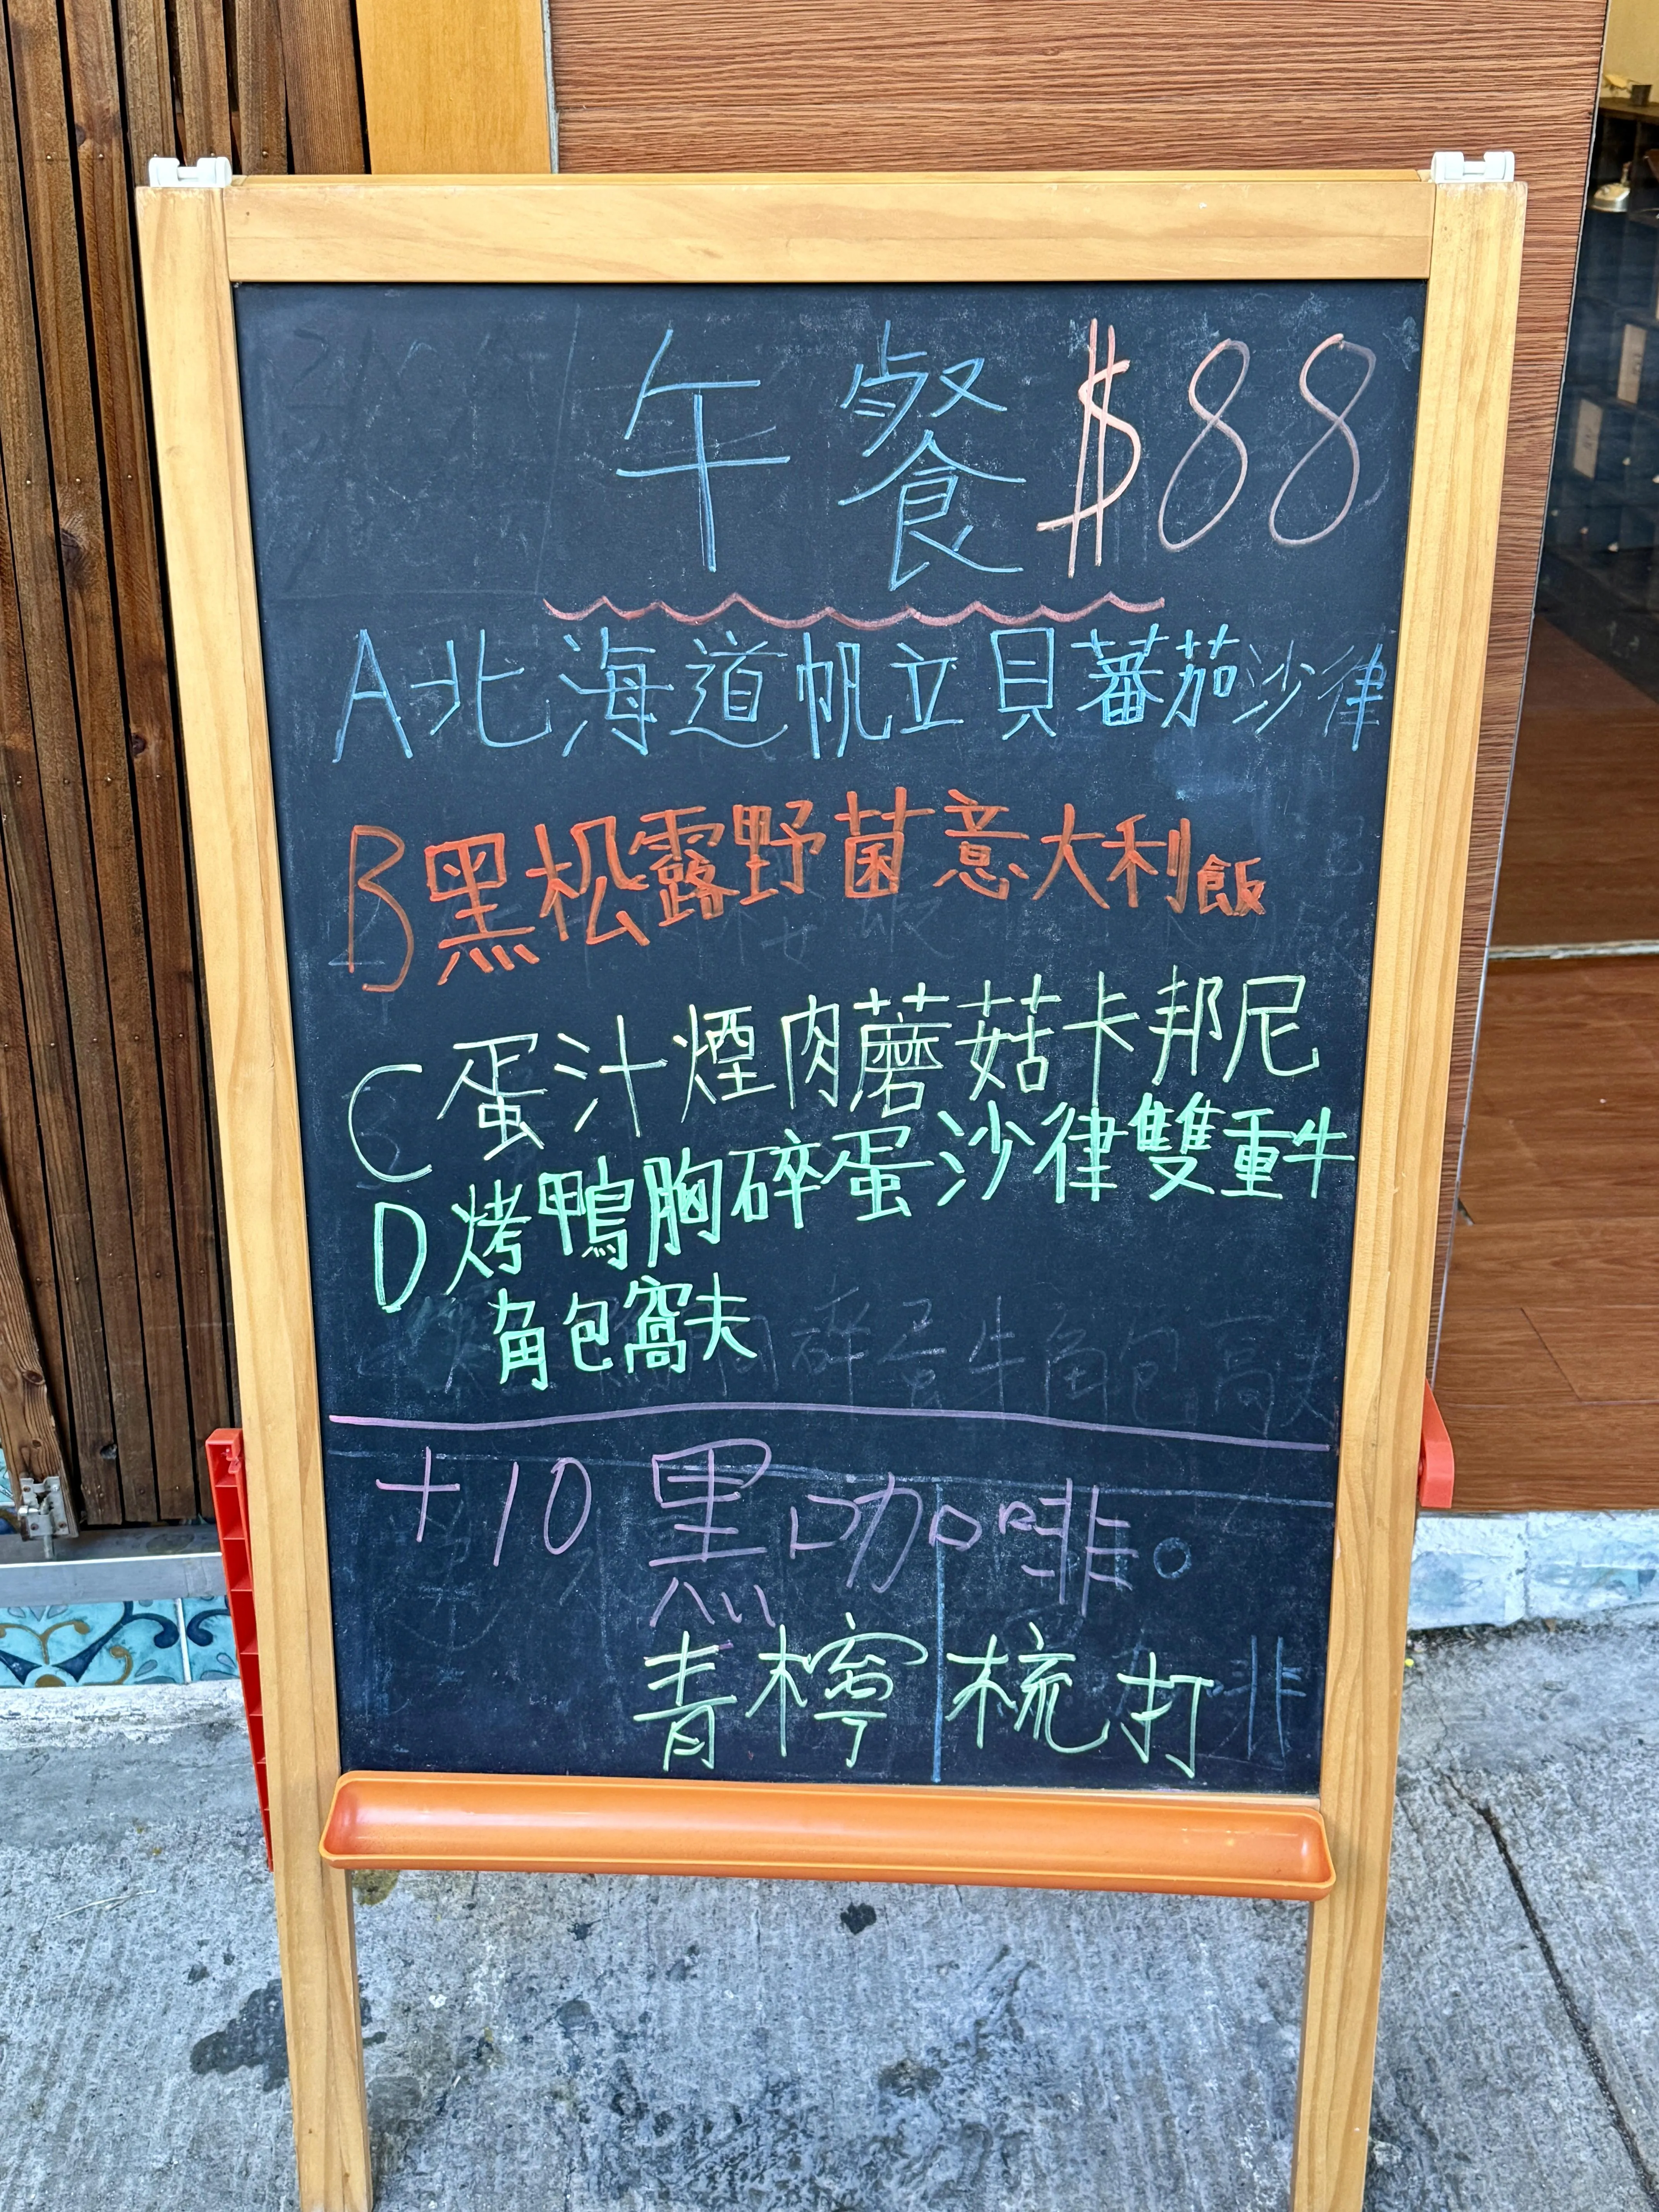 午餐$88
A北海道帆立貝蕃茄沙律
B黑松露野菌意大利飯
C蛋汁煙肉蘑菇卡邦尼
D烤鴨胸碎蛋沙律雙重牛
角包窩夫
+10 黑咖啡。
青檸梳打